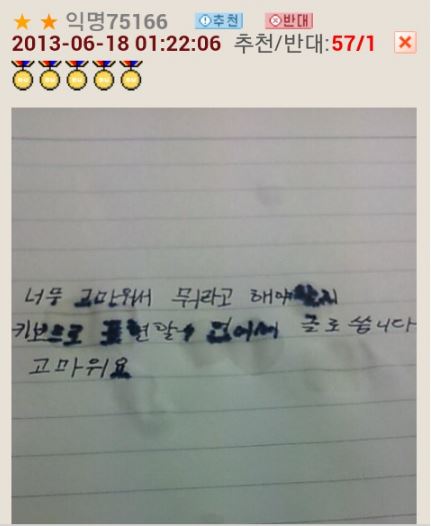 ★ ★ 익명75166 추천 반대
2013-06-18 01:22:06 추천/반대:57/1
너무 고마워서 뭐라고 해야할지
키보드로 표현할수 없어서 글로 씁니다
고마워요